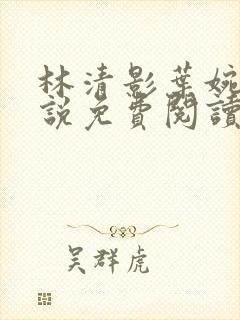 林清影葉婉
說免費閱讀
吳群虎